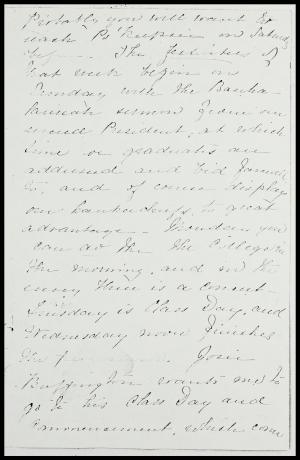 Probably you will want to
reach Po'keepsie on Saturday
The festivities of
that week begin on
Sunday with the Bacca-
laureate sermon from our
revered President, at which
time we graduates are
addressed and bid farewell
to, and of course display
our handkerchiefs to great
advantage. Monday you
can do the the College in
the morning, and in the
evening there is a concert.
Tuesday is Class Day, and
Wednesday noon finishes
the Josie
Buffington wants me to
go to his Class Day and
Commencement, which come